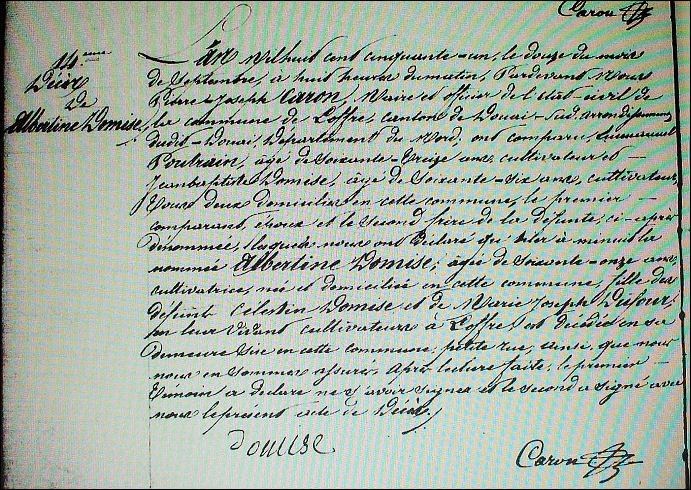 Caron
14ème
Décès
De
Albertine Domise,
L'An Mil huit cent cinquante-un, le douze du mois
de Septembre, à huit heures du matin, Pardevant Nous
Pierre-Joseph Caron, Maire et officier de l'état civil de
la commune de Loffre, canton de Douai-Sud, arrondissement
dudit-Douai, Département du Nord, ont comparu, Emmanuel
Poutrain, agé de Soixante-treize ans, cultivateur et
Jeanbaptiste Domise, agé de Soixante-Six ans, cultivateur,
Tous deux domiciliés en cette commune, le premier
comparant, époux et le Second frère de la défunte, ci-après
dénommée, lesquels nous ont déclaré qu'hier à minuit la
nommée Albertine Domise, agée de Soixante-onze ans,
cultivatrice, née et domiciliée en cette commune, fille des
défunts Célestin Domise et de Marie Joseph Dufour,
en leur vivant cultivateurs à Loffre, est décédée en sa
demeure Sise en cette commune, petite rue, ainsi que nous
nous en Sommes assurés, après lecture faite, le premier
témoin a déclaré ne Savoir Signer et le Second a Signé avec
nous le présent acte de Décès,
Domise
Caron